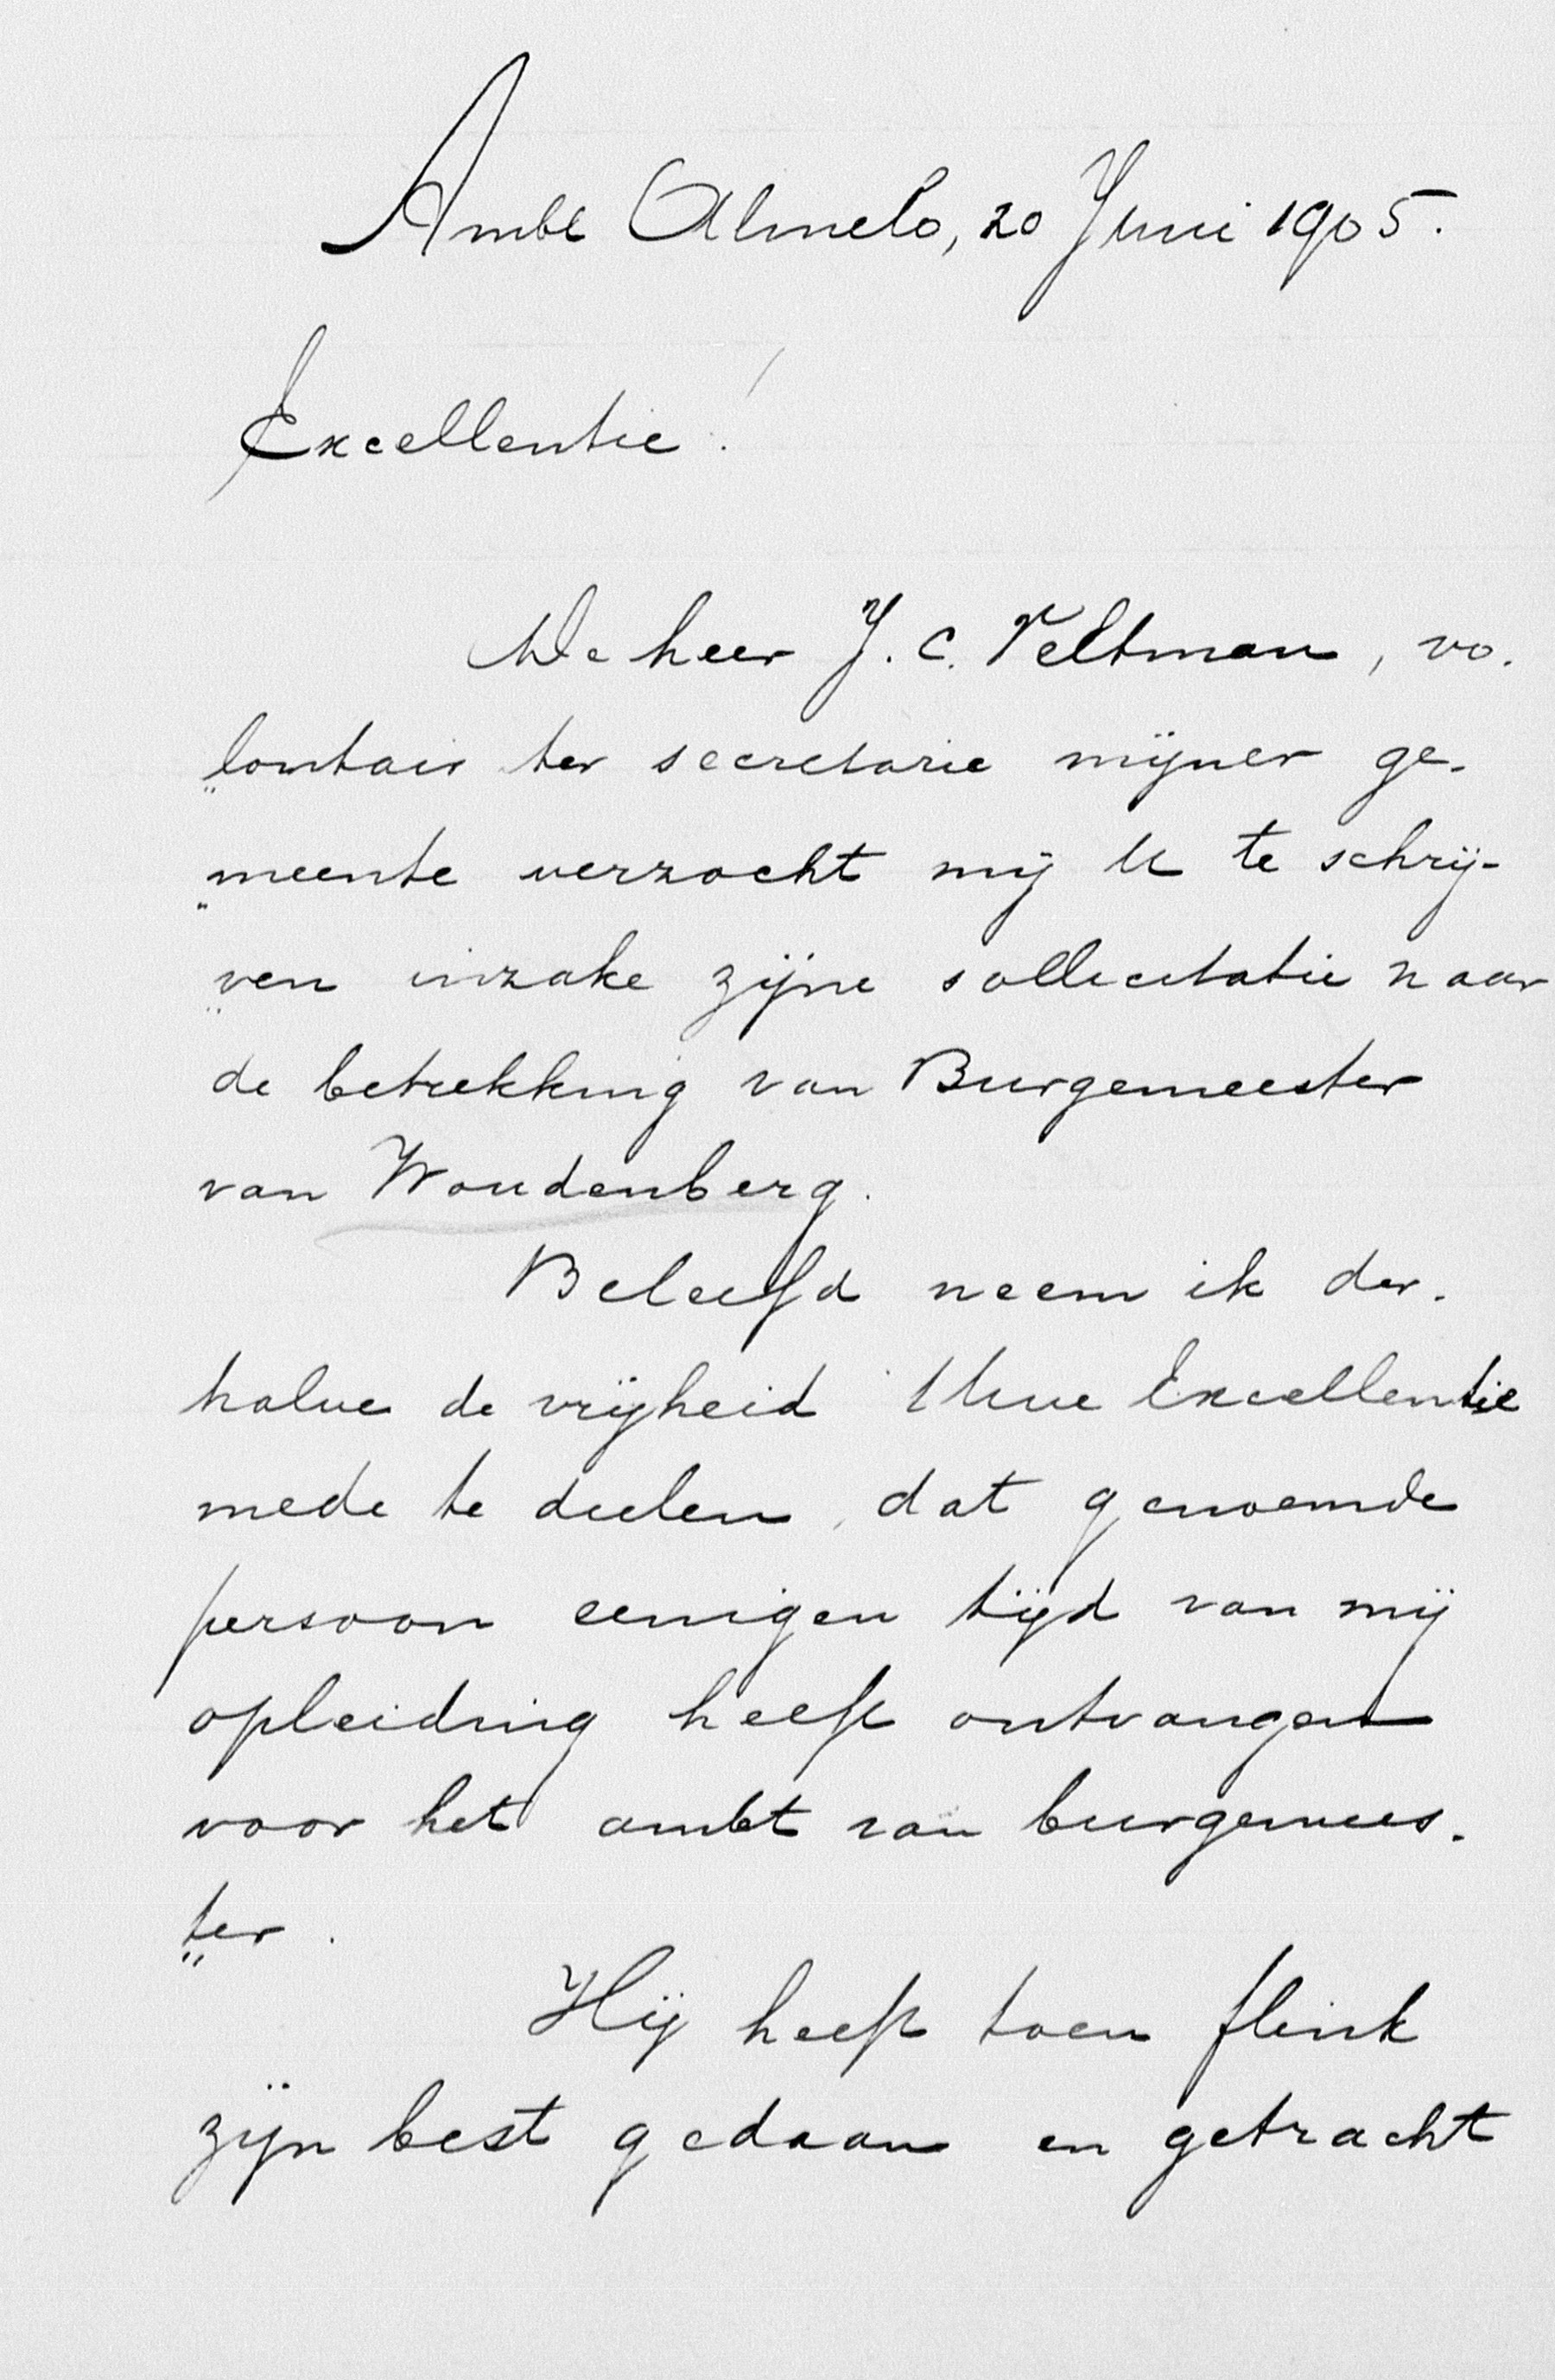 Ambt Almelo, 20 Juni 1905.
Excellentie!
De heer J. C. Veltman, vo-
"lontair ter secretarie mijner ge-
"meente verzocht mij U te schrij-
"ven inzake zijne sollicitatie naar
de betrekking van Burgemeester
van Woudenberg.
Beleefd neem ik der-
halve de vrijheid Uwe Excellentie
mede te deelen, dat genoemde
persoon eenigen tijd van mij
opleiding heeft ontvangen
voor het ambt van burgemees-
"ter.
Hij heeft toen flink
zijn best gedaan en getracht